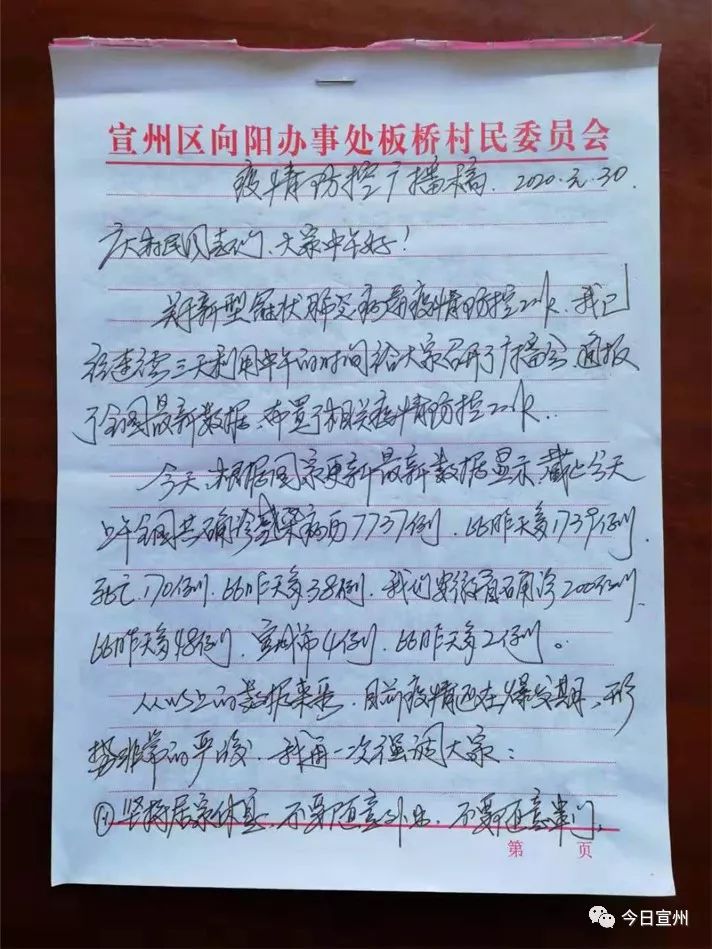 宣州区向阳办事处板桥村民委员会
疫情防控广播稿. 2020.元.30.
广大村民同志们、大家中午好!
关于新型冠状肺炎病毒疫情防控工作, 我已
经连续三天利用中午的时间给大家召开了广播会, 通报
了全国最新数据, 布置了相关疫情防控工作..
今天, 根据国家更新最新数据显示, 截止今天
上午全国共确诊感染病历7737例, 比昨天多1739例,
死亡170例, 比昨天多38例, 我们安徽省确诊200例,
比昨天多48例, 宣城市4例, 比昨天多2例。
从以上的数据来看, 目前疫情还在爆发期, 形
势非常的严峻, 我再一次强调大家:
① 坚持居家休息, 不要随意外出, 不要随意串门,
第 页
今日宣州